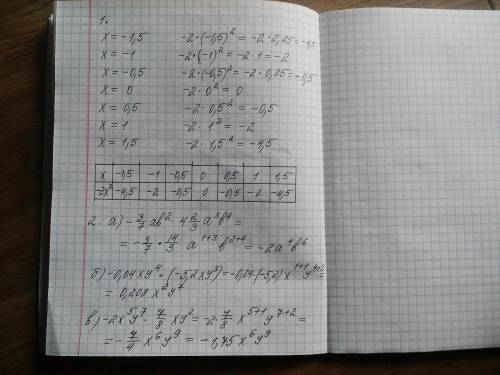 1.
x = -1,5 -2·(-1,5)² = -2·2,25 = -4,5
x = -1 -2·(-1)² = -2·1 = -2
x = -0,5 -2·(-0,5)² = -2·0,25 = -0,5
x = 0 -2·0² = 0
x = 0,5 -2·0,5² = -0,5
x = 1 -2·1² = -2
x = 1,5 -2·1,5² = -4,5
x -1,5 -1 -0,5 0 0,5 1 1,5
-2x² -4,5 -2 -0,5 0 -0,5 -2 -4,5
2. а) -3/7 ab²· 4 2/3 a³b⁴ =
= -3/7 · 14/3 a¹⁺³ b²⁺⁴ = -2a⁴b⁶
б) -0,04xy⁴ · (-5,2xy³) = -0,04·(-5,2) x¹⁺¹y⁴⁺³ =
= 0,208x²y⁷
в) -2x⁵y⁷ · 7/8 xy² = -2·7/8 x⁵⁺¹y⁷⁺² =
= -7/4 x⁶y⁹ = -1,75x⁶y⁹